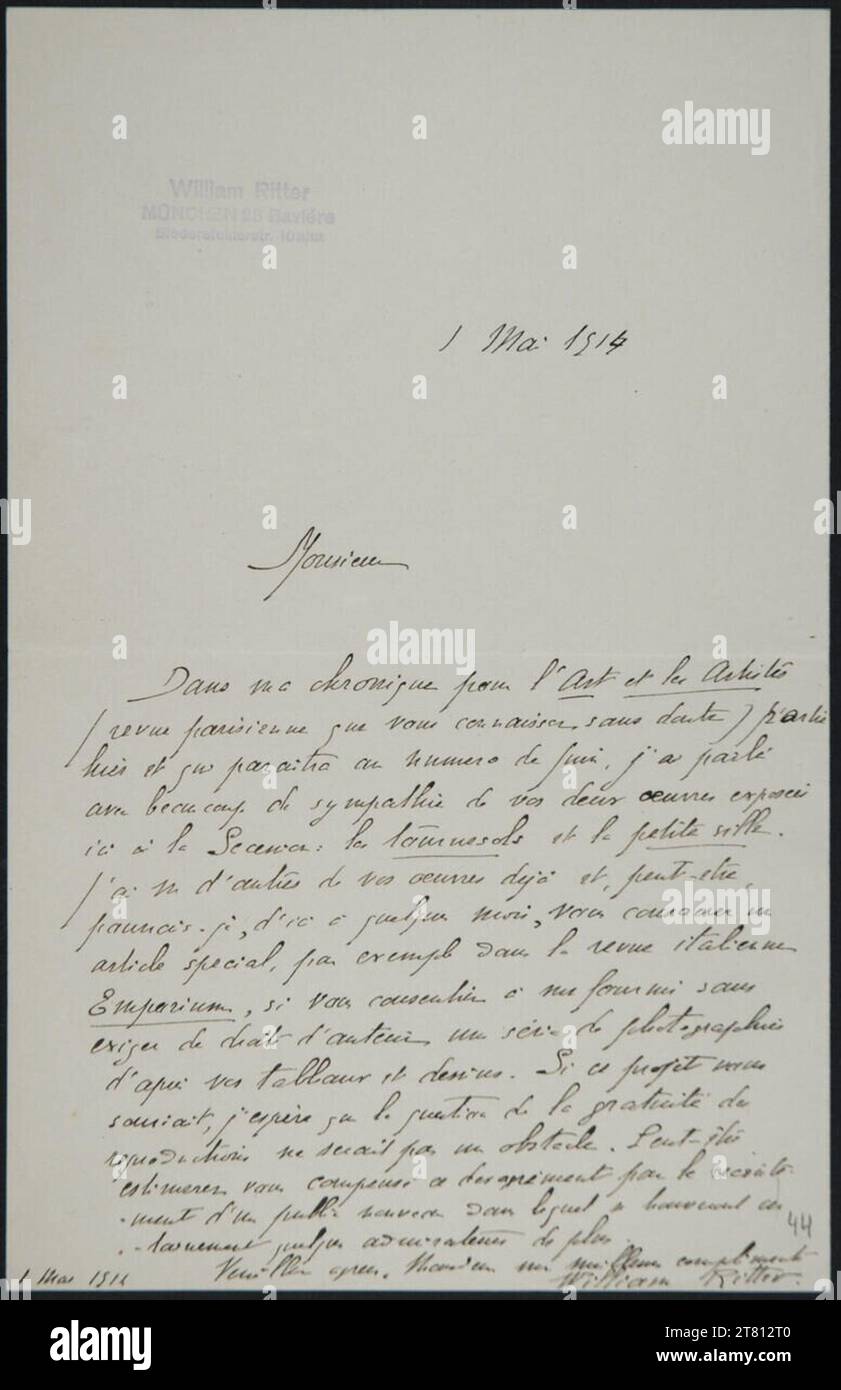 William Ritter
MÜNCHEN 23 Bavière
1 Mai 1914
Monsieur
Dans ma chronique pour l'Art et les Artistes
(revue parisienne que vous connaissez sans doute) partie
hier et qui paraîtra au numero de Juin, j'ai parlé
avec beaucoup de sympathie de vos deux œuvres exposées
ici à la Secession: les tournesols et la petite ville.
J'ai vu d'autres de vos œuvres déjà et, peut-être,
pourrais-je, d'ici à quelques mois, vous consacrer un
article special, par exemple dans la revue italienne
Emporium, si vous consentiez à me fournir sans
exiger de droits d'auteur, une série de photographies
d'après vos tableaux et dessins. Si ce projet vous
souriait, j'espère que la question de la gratuité des
reproductions ne serait pas un obstacle. Peut-être
estimerez vous compensé ce désagrément par le
-ment d'un public nouveau dans lequel se trouveront cer
-tainement quelques admirateurs de plus.
Veuillez agréer, Monsieur mes meilleurs compliments
William Ritter.
44
1 Mai 1914
alamy
Image ID: 2T812T0
www.alamy.com